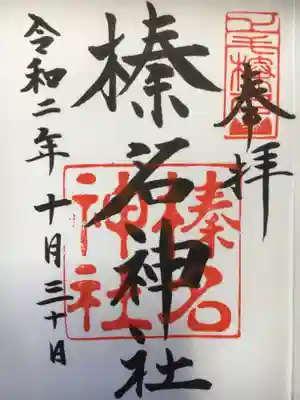 奉拝
榛名神社
榛名
神社
令和二年十月三十日